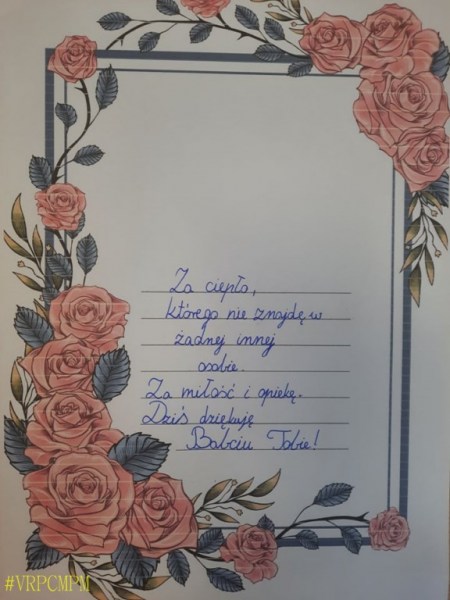 Za ciepło,
którego nie znajdę w
żadnej innej
osobie.
Za miłość i opiekę.
Dziś dziękuję
Babciu Tobie!
#VRPCMPM